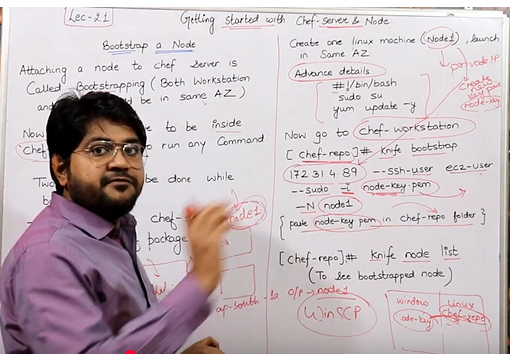 Lec-21
Getting started with Chef-server & Node
Bootstrap a Node
Attaching a node to chef server is
Called Bootstrapping (Both Workstation
and be in same AZ)
Now to be inside
"Chef to run any Command.
Two be done while
chef- node1
package
-south-1a
Create one linux machine (Node1), launch
in Same AZ
private IP
Advance details
#!/bin/bash
sudo su
yum update -y
Create
key pair
node-key
Now go to chef-workstation
[chef-repo]# knife bootstrap
172 31 4 89 --ssh-user ec2-user
--sudo -i node-key.pem
-N node1
{ paste node-key.pem in chef-repo folder }
[chef-repo]# knife node list
(To see bootstrapped node)
o/p → node1
WinSCP
Window
Linux
ode-key
Chef-repo